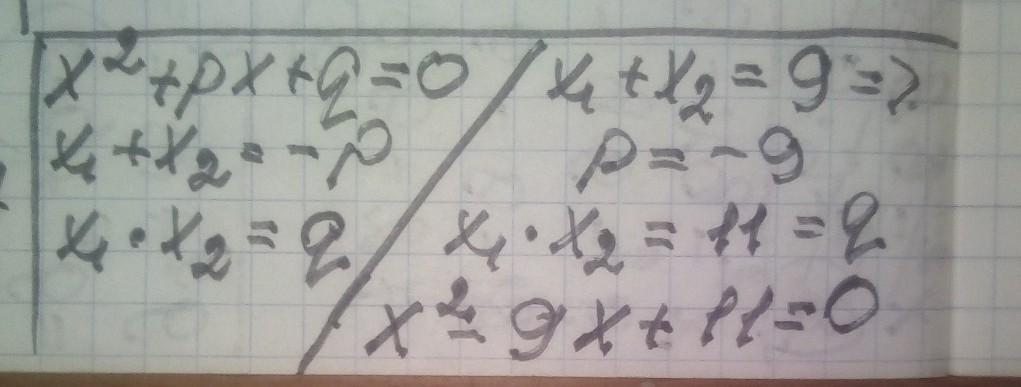 x²+px+q=0
x₁+x₂=-p
x₁·x₂=q
x₁+x₂=9=>
p=-9
x₁·x₂=11=q
x²-9x+11=0